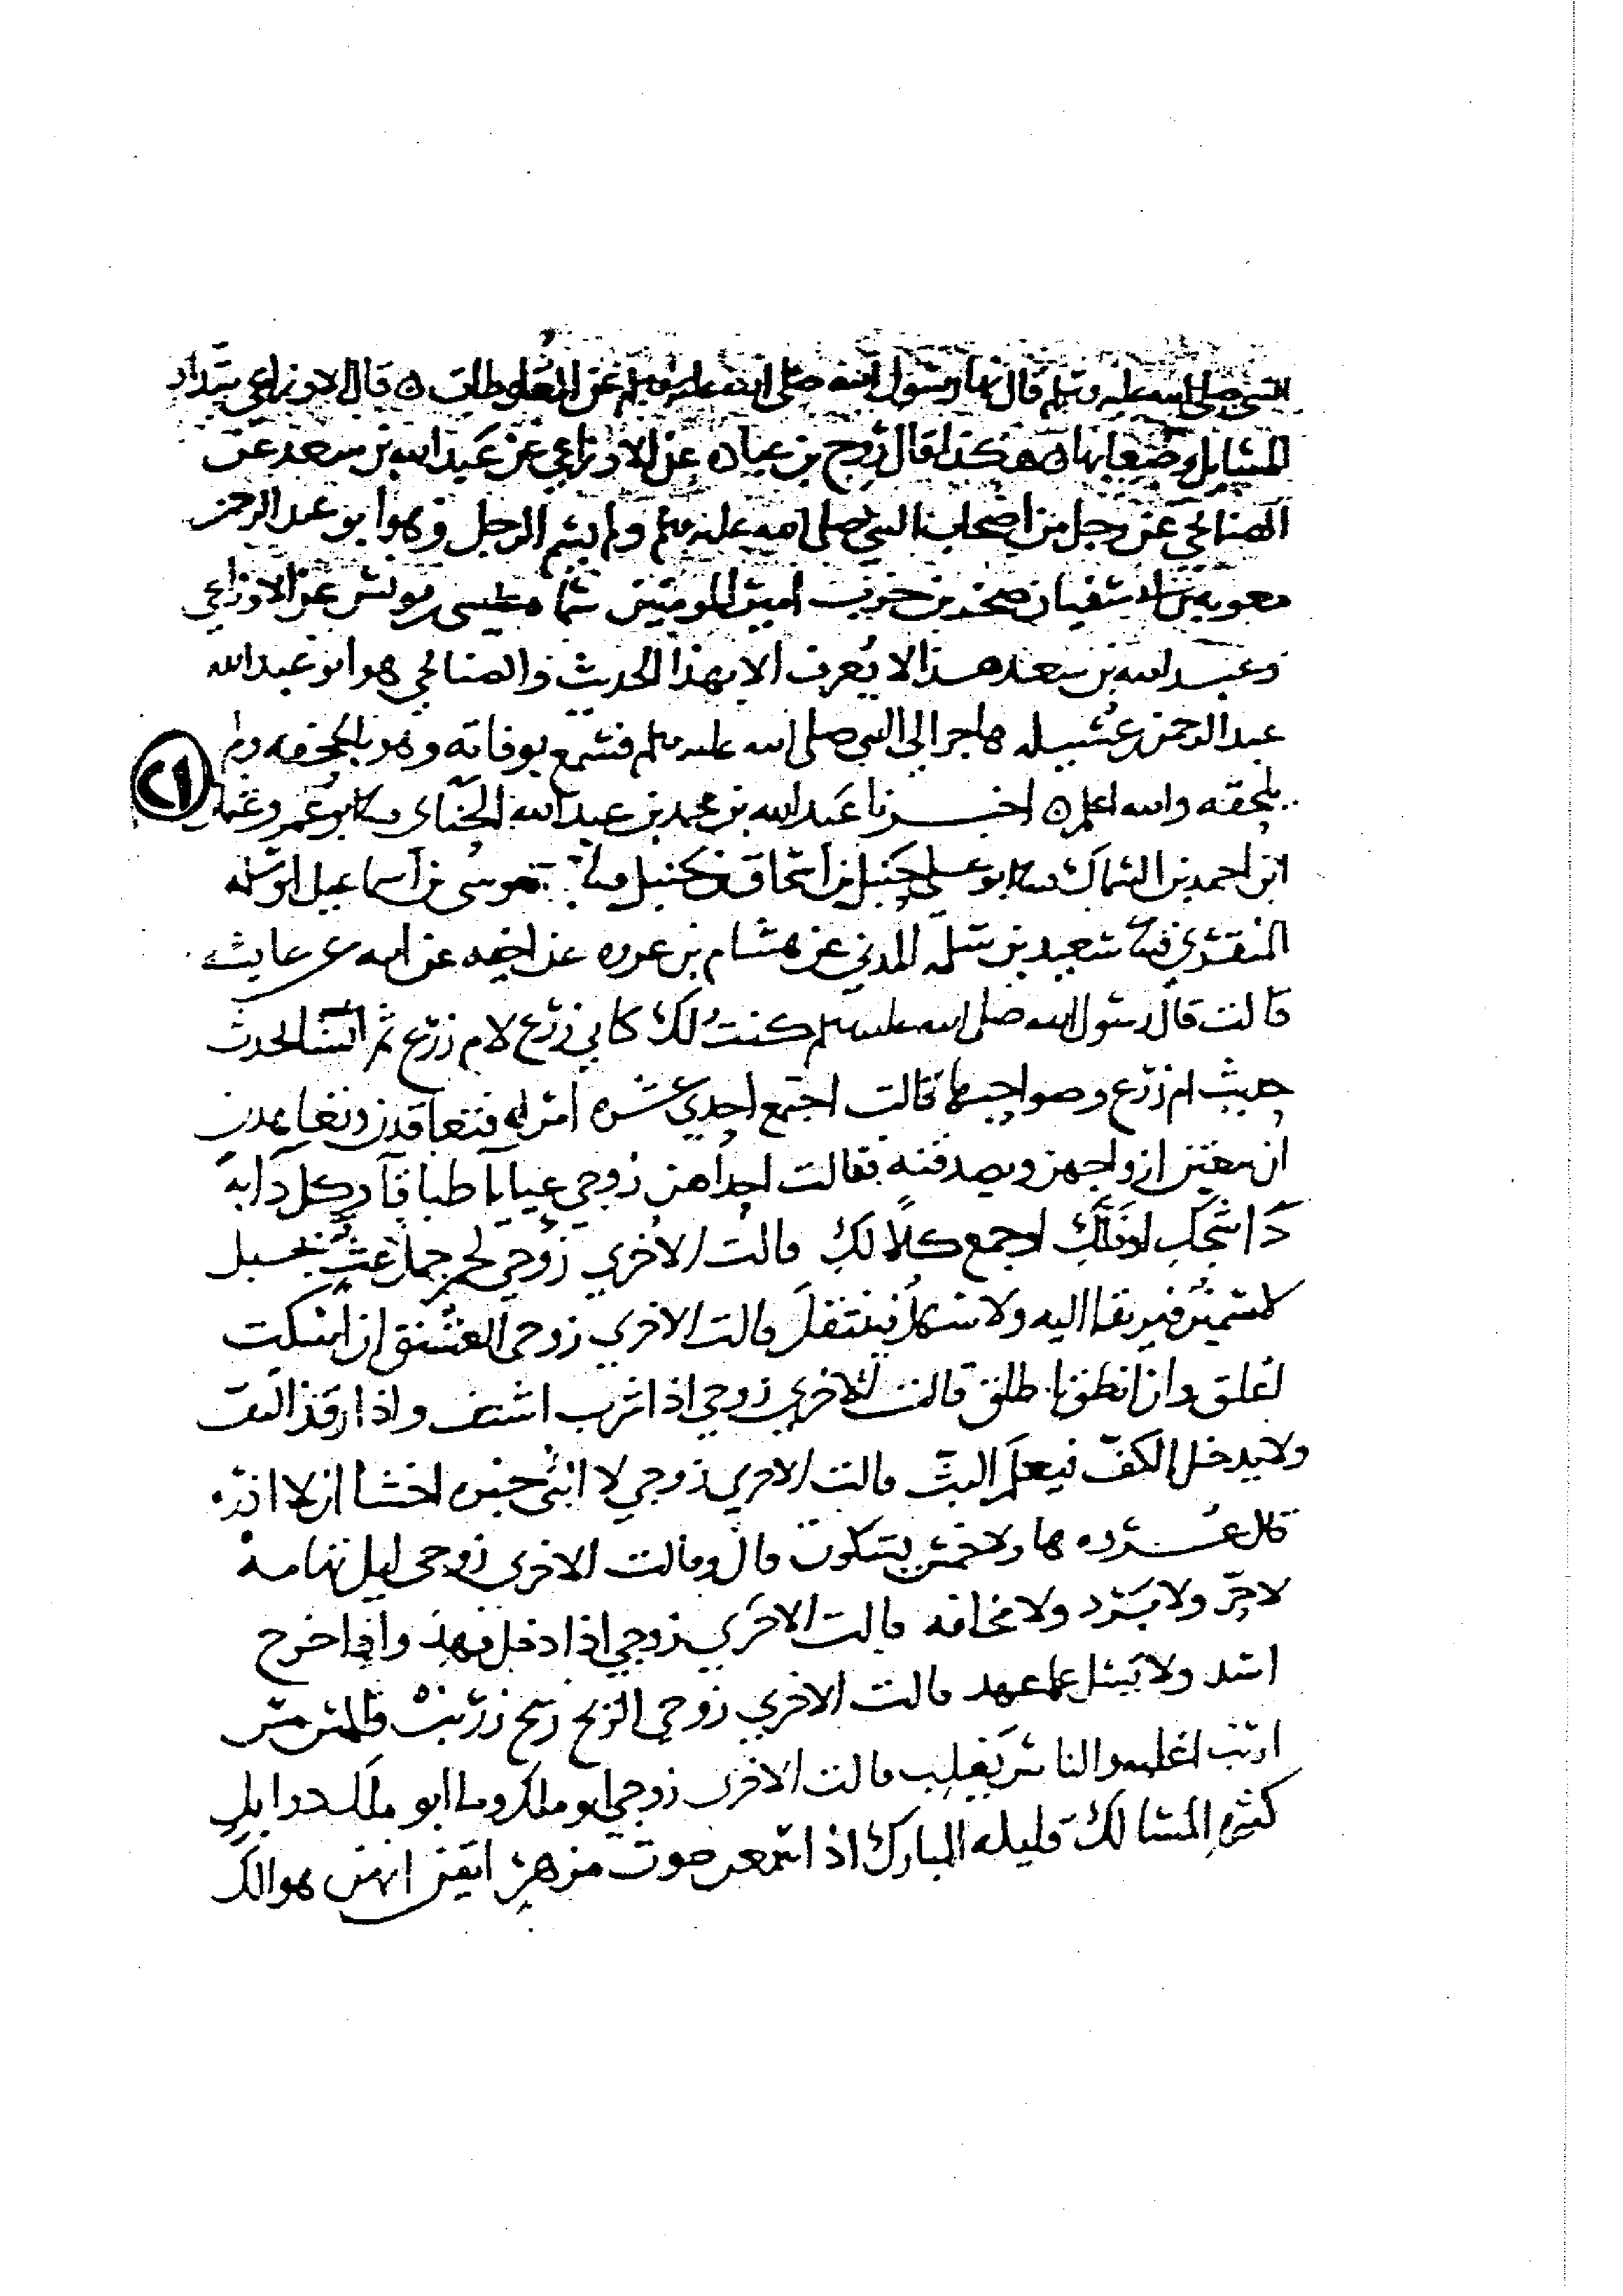 النبي صلى الله عليه وسلم قال نها رسول الله صلى الله عليه وسلم عن الغلوطات ه قال الاوزاعي شداد
المسايل وصعابها ه هكذا قال روح بن عباده عن الاوزاعي عن عبد الله بن سعد عن
الصنابحي عن رجل من اصحاب النبي صلى الله عليه وسلم ولم يسم الرجل وهو ابو عبد الرحمن
معويه بن ابي سفيان صخر بن حرب امير المومنين سماه عيسى بن يونس عن الاوزاعي
وعبد الله بن سعد هذا لا يعرف الا بهذا الحديث والصنابحي هو ابو عبد الله
عبد الرحمن بن عسيله هاجر الى النبي صلى الله عليه وسلم فسمع بوفاته وهو بالجحفه ولم
يلحقه والله اعلم ه اخبرنا عبد الله بن محمد بن عبد الله الحنائي ثنا ابو عمرو عثمان
٢١
ابن احمد بن السماك ثنا ابو علي حنبل بن اسحاق بن حنبل ثنا موسى بن اسماعيل ابو سلمه
المنقري ثنا سعيد بن سلمه المدني عن هشام بن عروه عن اخيه عن ابيه عن عايشه
قالت قال رسول الله صلى الله عليه وسلم كنت لك كابي زرع لام زرع ثم انشا الحديث
حديث ام زرع وصواحبها قالت اجتمع احدي عشره امراه فتعاقدن وتعاهدن
ان ينعتن ازواجهن ويصدقنه فقالت احداهن زوجي عيايا طباقا وكل دابه
دا شجك او فلك او جمع كلا لك قالت الاخري زوجي لحم جمل غث بجبل
لا سمين فيرتقا اليه ولا سهل فينتقل قالت الاخري زوجي العشنق ان اسكت
اعلق وان انطق اطلق قالت الاخري زوجي اذا شرب اشتف واذا رقد التف
ولا يدخل الكف فيعلم البث قالت الاخري زوجي لا ابثي خبره اخشا ان لا اذره
قال عروه بها ولا خمس يسكون قال وقالت الاخري زوجي ليل تهامه
لا حر ولا برد ولا مخافه قالت الاخري زوجي اذا دخل فهد واذا خرج
اسد ولا يسل عما عهد قالت الاخري زوجي الريح ريح زرنب والمس مس
ارنب اغلبه والناس يغلب قالت الاخري زوجي ابو مالك وما ابو مالك ذو ابل
كثيره المسالك قليله المبارك اذا سمعن صوت مزهر ايقن انهن هوالك